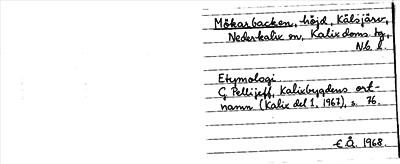 Mökarbacken, höjd, Kälsjärv,
Nederkalix sn, Kalix doms. tg,
Nb. l.
Etymologi
G. Pellijeff, Kalixbygdens ort-
namn (Kalix del 1. 1967), s. 76.
E. Å. 1968.